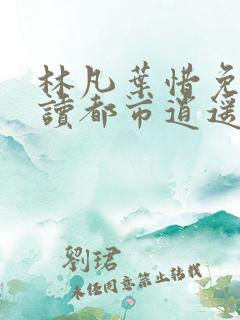 林凡葉惜免
讀都市逍遥
劉珺
未经同意禁止转载